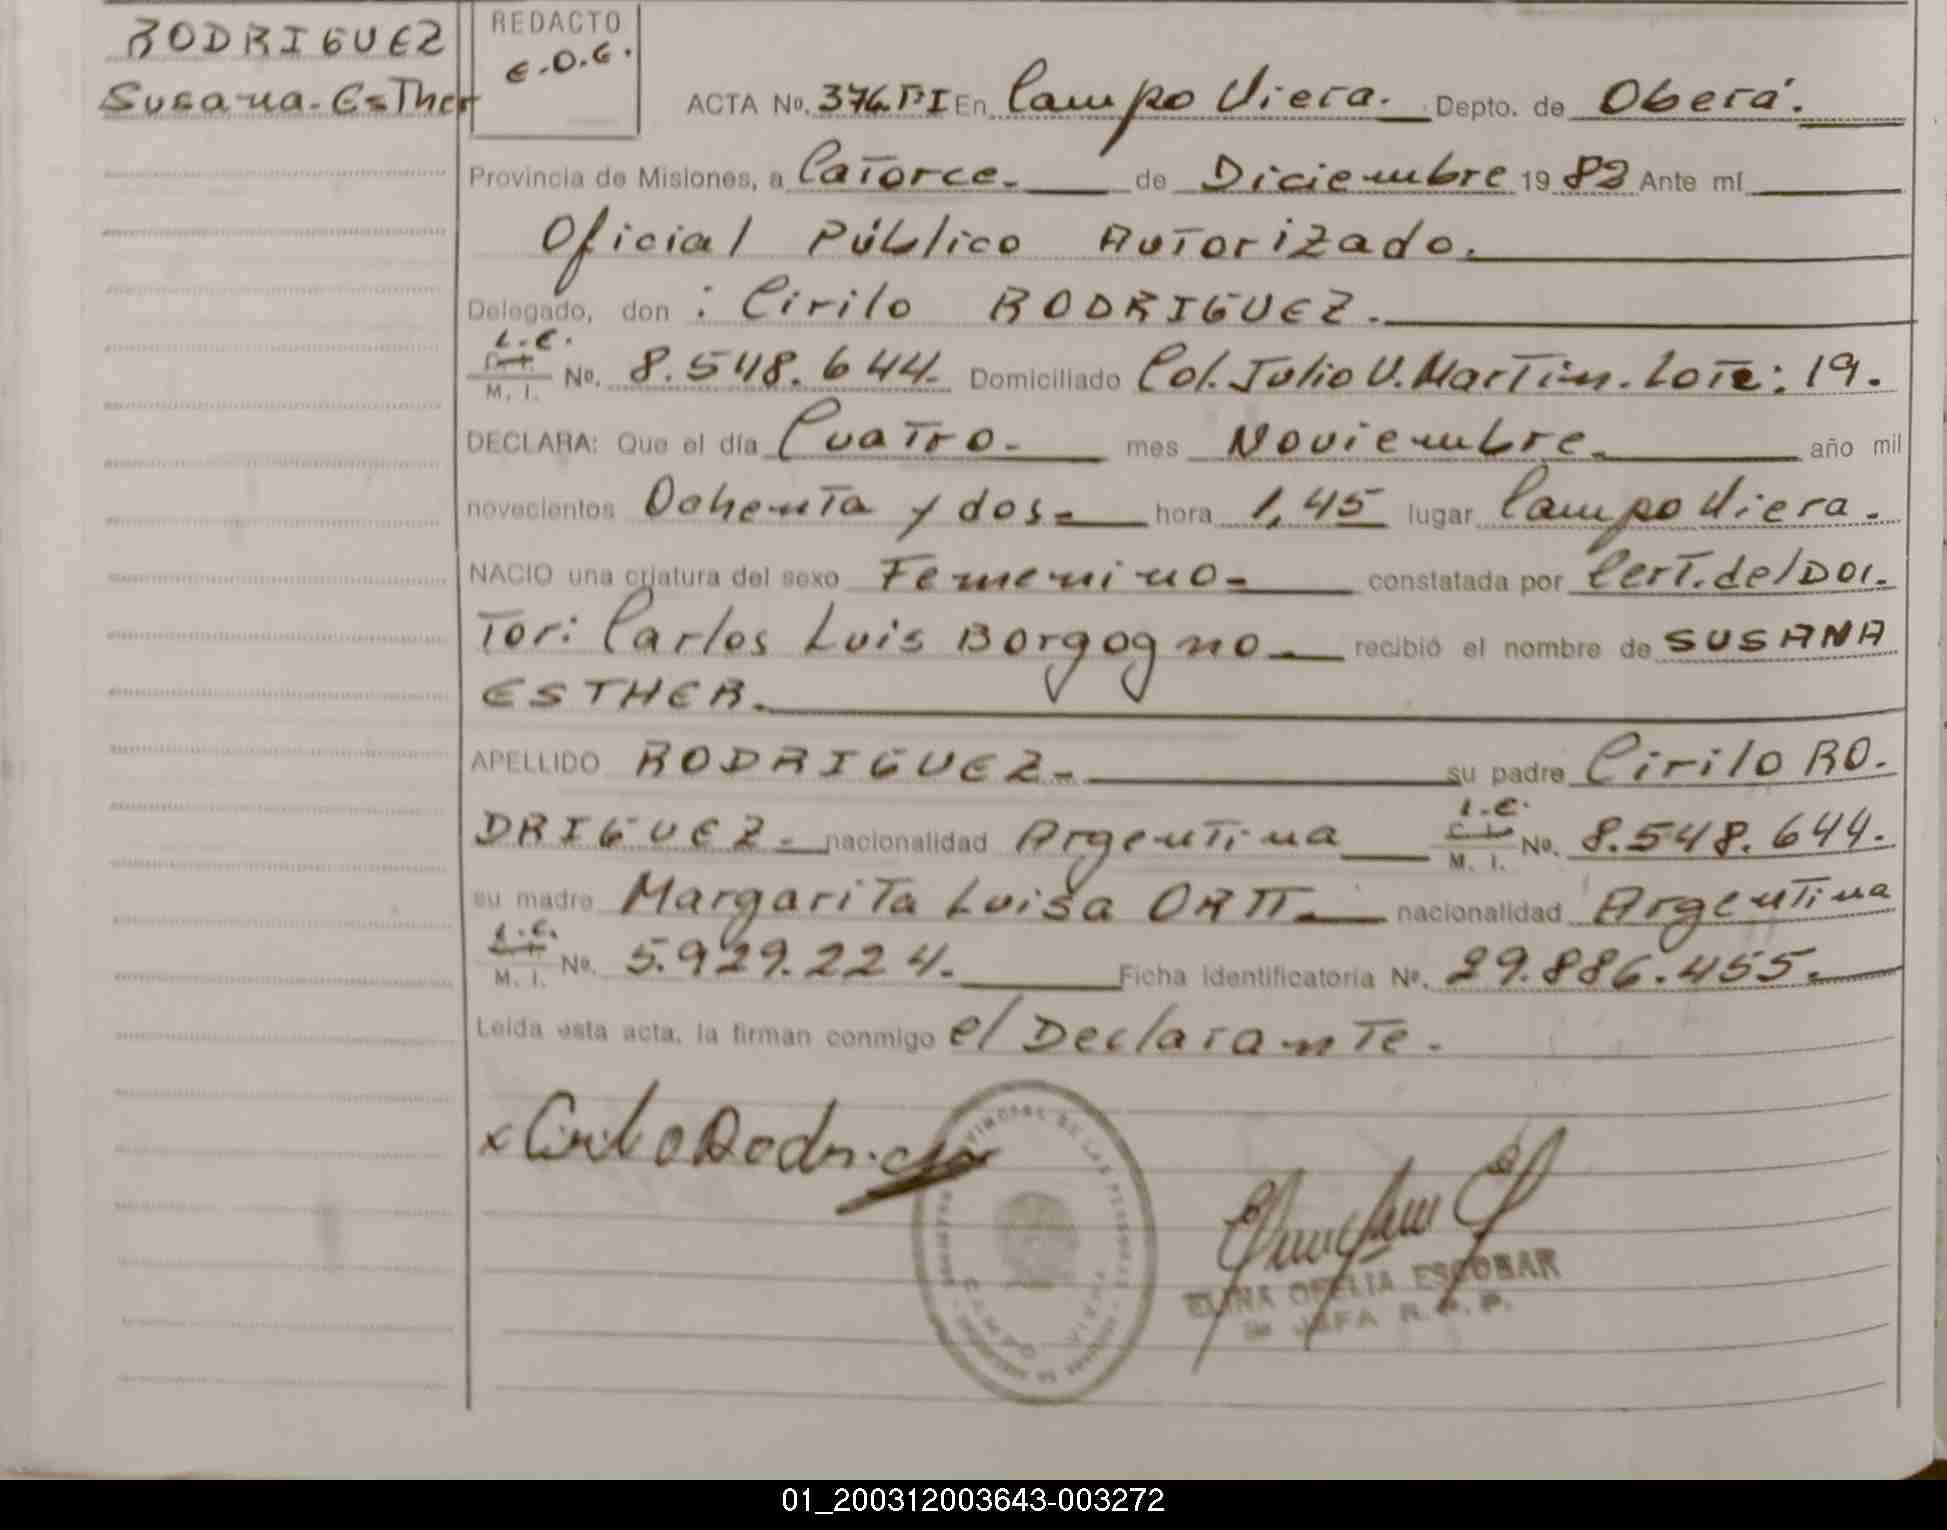 RODRIGUEZ
Susana-Esther
REDACTO
E.O.E.
ACTA No. 376.TºI En Campo Viera. Depto. de Oberá.
Provincia de Misiones, a Catorce. de Diciembre 19 82 Ante mí
Oficial Público Autorizado.
Delegado, don : Cirilo RODRIGUEZ.
L.E.
M. I. No. 8.548.644. Domiciliado Col. Julio U. Martin. Lote: 19.
DECLARA: Que el día Cuatro. mes Noviembre. año mil
novecientos Ochenta y dos. hora 1,45 lugar Campo Viera.
NACIO una criatura del sexo Femenino. constatada por Cert. del Doc.
Tor: Carlos Luis Borgogno recibió el nombre de SUSANA
ESTHER.
APELLIDO RODRIGUEZ. su padre Cirilo RO.
DRIGUEZ. nacionalidad Argentina L.E. M. I. No. 8.548.644.
su madre Margarita Luisa ORTT. nacionalidad Argentina
L.E.
M. I. No. 5.929.224. Ficha identificatoria No. 29.886.455.
Leida esta acta, la firman conmigo el Declarante.
x Cirilo Rodriguez
PROVINCIAL DE LAS PERSONAS
CAMPO VIERA
ELINA OFELIA ESCOBAR
JEFA R. P. P.
01_200312003643-003272